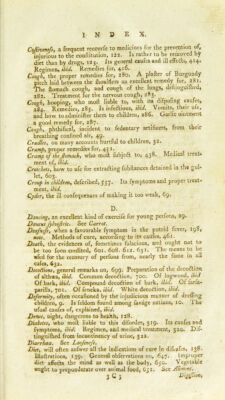 I N D E X.
Costiveness, a frequent recourse to medicines for the prevention of,
injurious to the constitution, 122. Is rather to be removed by
diet than by drugs, 123. Its general causes and ill effects, 414.
Regimen, ibid. Remedies for, 416.
Cough, the proper remedies for, 280. A plaster of Burgundy
pitch laid between the shoulders an excellent remedy for, 281.
The stomach cough, and cough of the lungs, distinguished,
282. Treatment for the nervous cough, 283.
Cough, hooping, who most liable to, with its disposing causes,
284. Remedies, 285. Is infectious, ibid. Vomits, their use,
and how to administer them to children, 286. Garlic ointment
a good remedy for, 287.
Cough, phthisical, incident to sedentary artificers, from their
breathing confined air, 49.
Cradles, on many accounts hurtful to children, 32.
Cramp, proper remedies for, 451.
Cramp of the stomach, who most subject to, 438. Medical treatment
of, ibid.
Crotchets, how to use for extracting substances detained in the gullet,
603.
Croup in children, described, 537. Its symptoms and proper treatment,
ibid.
Cyder, the ill consequences of making it too weak, 69.
D.
Dancing, an excellent kind of exercise for young persons, 29.
Daucus sylvestris. See Carrot.
Deafness, when a favourable symptom in the putrid fever, 198,
note. Methods of cure, according to its causes, 461.
Death, the evidences of, sometimes fallacious, and ought not to
be too soon credited, 601. 608. 612. 631. The means to be
used for the recovery of persons from, nearly the same in all
cases, 632.
Decoctions, general remarks on, 699. Preparation of the decoction
of althæa, ibid. Common decoction, 700. Of logwood, ibid
Of bark, ibid. Compound decoction of bark, ibid. Of sarsaparilla,
701. Of seneka, ibid. White decoction, ibid.
Deformity, often occasioned by the injudicious manner of dressing
children, 9. Is seldom found among savage nations, 10. The
usual causes of, explained, ibid.
Dews, night, dangerous to health, 128.
Diabetes, who most liable to this disorder, 319. Its causes and
symptoms, ibid. Regimen, and medical treatment, 320. Distinguished
from incontinency of urine, 322.
Diarrhœa. See Looseness.
Diet, will often answer all the indications of cure in diseases, 138.
Illustrations, 139. General observations on, 647. Improper
diet affects the mind as well as the body, 650. Vegetable
ought to preponderate over animal food, 651. See Aliment.
3 C 3
Digestion,